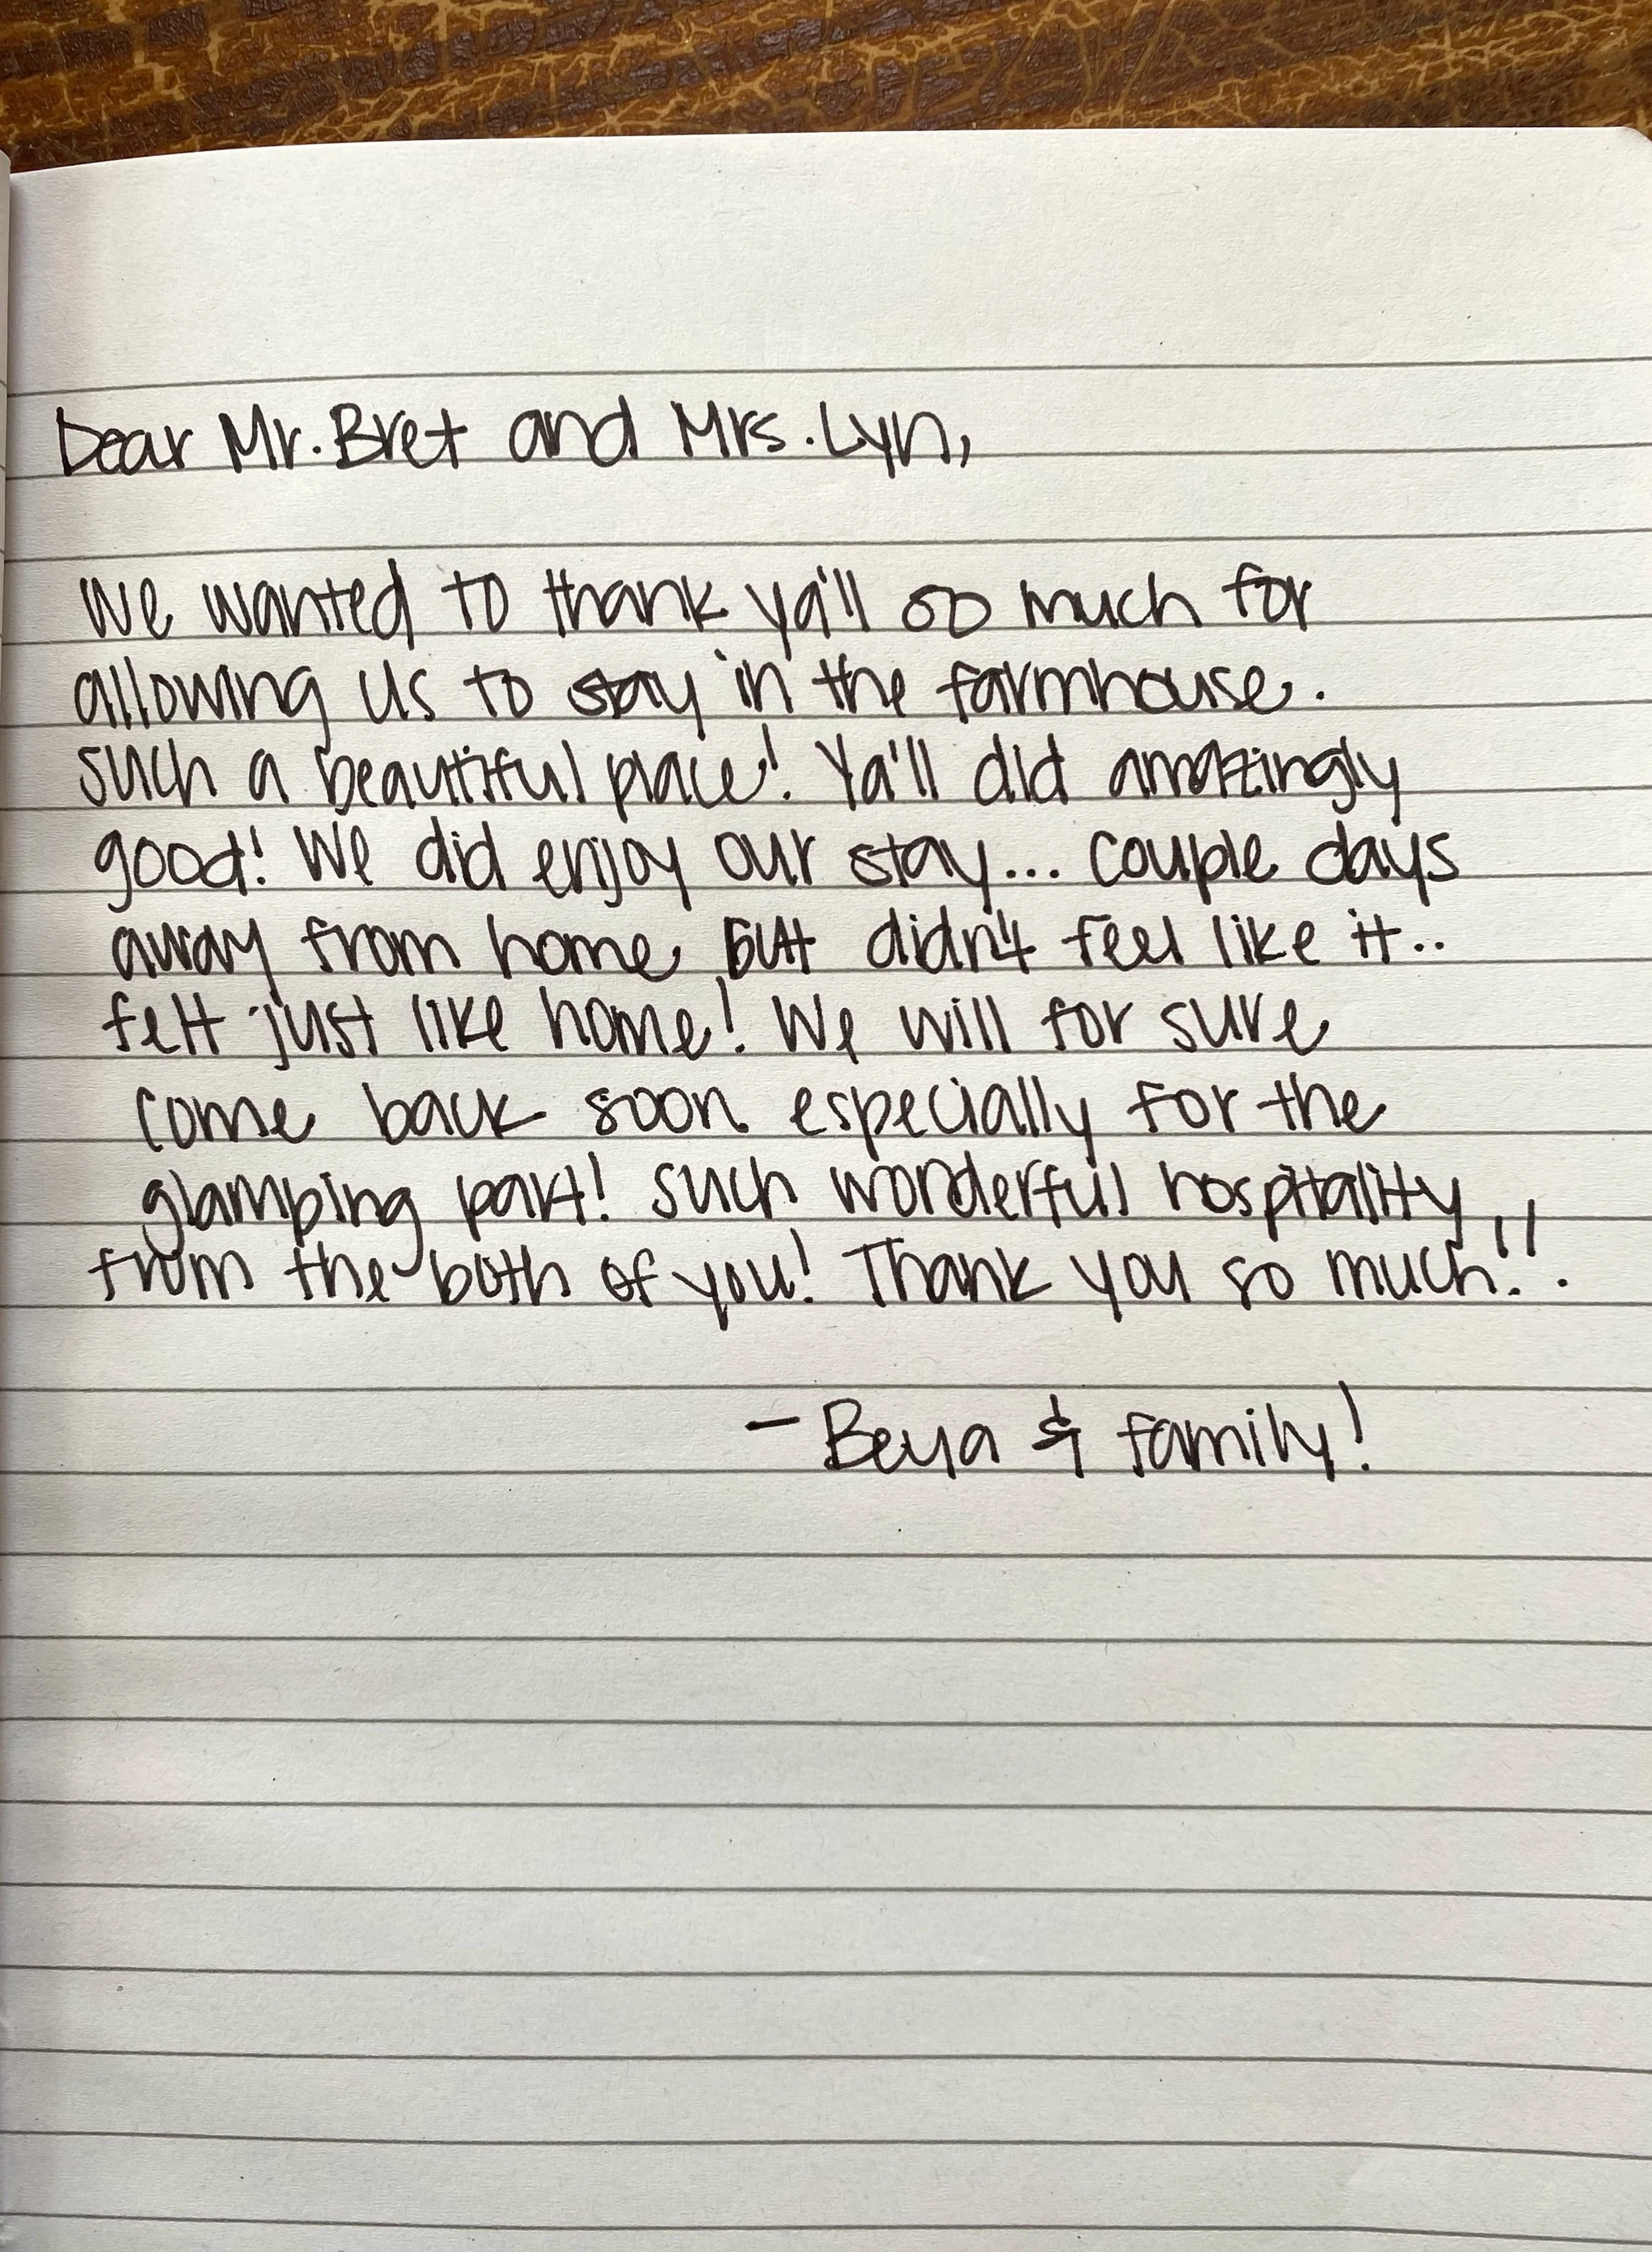 Dear Mr. Bret and Mrs. Lyn,
We wanted to thank ya'll so much for
allowing us to stay in the farmhouse.
Such a beautiful place! Ya'll did amazingly
good! We did enjoy our stay... couple days
away from home but didn't feel like it..
felt just like home! We will for sure
come back soon especially for the
glamping part! Such wonderful hospitality
from the both of you! Thank you so much!!
- Beya & family!